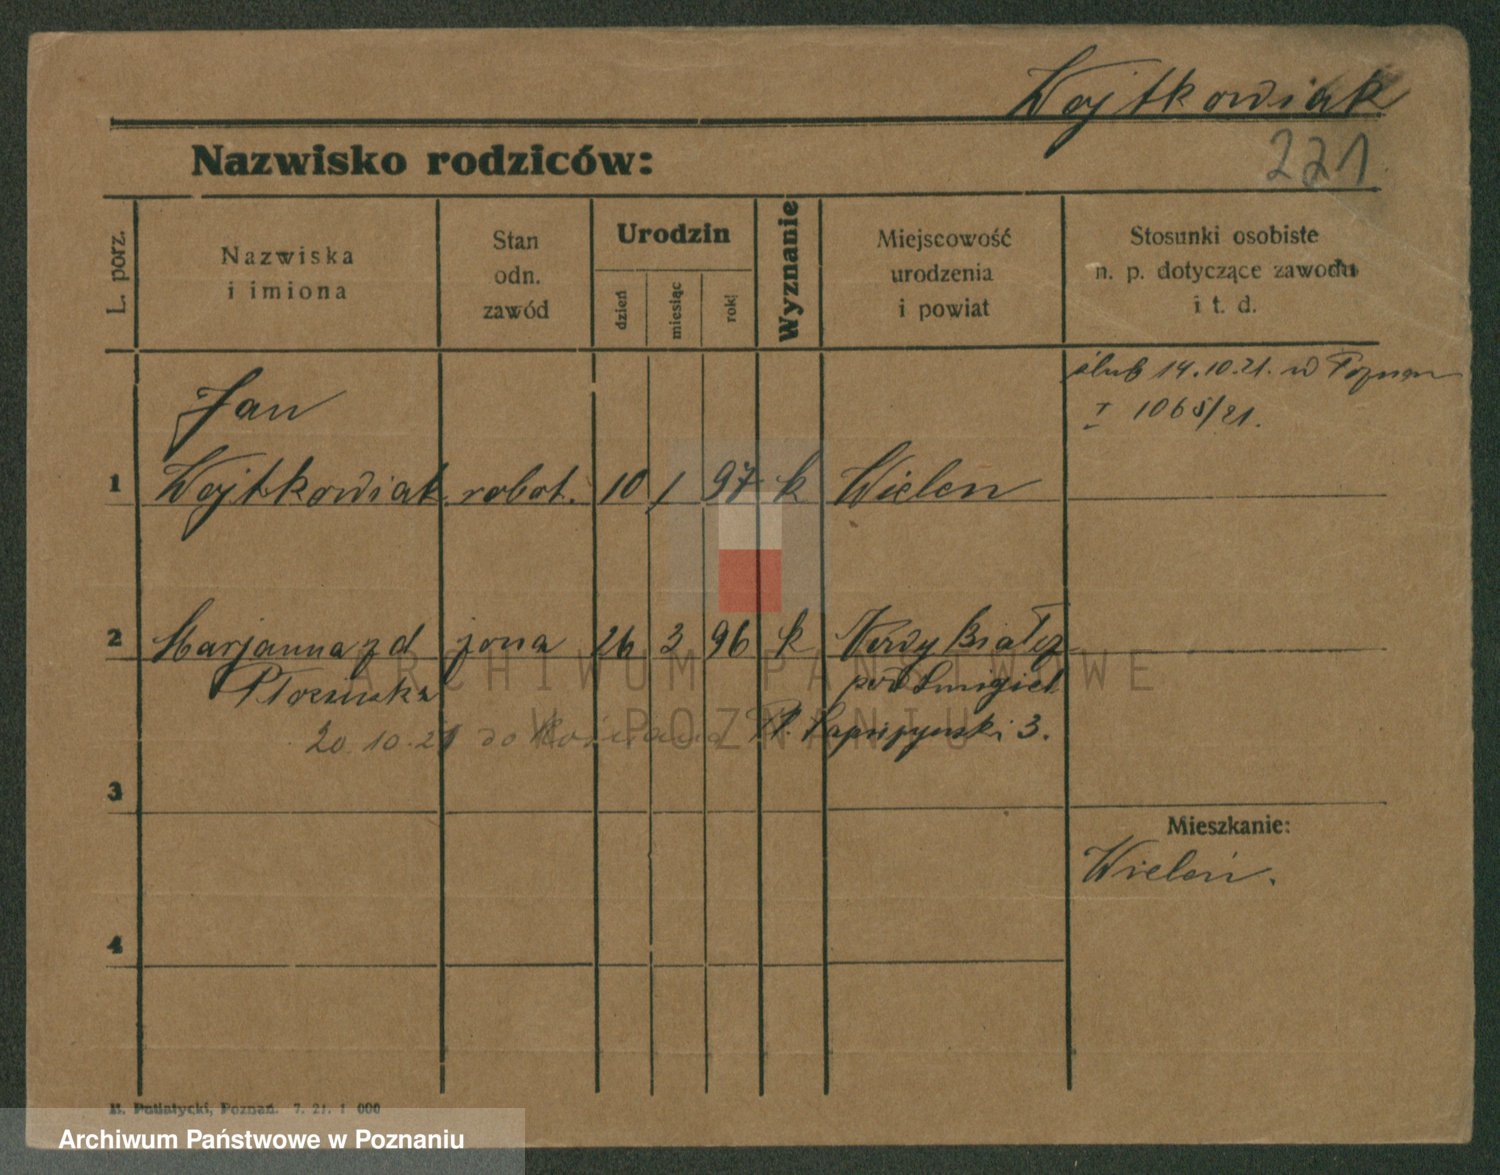 Wojtkowiak
221
Nazwisko rodziców:
L. porz.
Nazwiska
i imiona
Stan
odn.
zawód
Urodzin
dzień
miesiąc
rok
Wyznanie
Miejscowość
urodzenia
i powiat
Stosunki osobiste
n. p. dotyczące zawodu
i t. d.
ślub 14.10.21. w Poznan
I 1065/21.
Jan
1 Wojtkowiak robot. 10 1 97 k Wielen
2 Marjanna zd żona 26 3 96 k
pod
20.10.21 do Pl. 3.
3
Mieszkanie:
Wieleń.
4
ARCHIWUM PAŃSTWOWE
W POZNANIU
M. Putiatycki, Poznań. 7. 21. 1 000
Archiwum Państwowe w Poznaniu